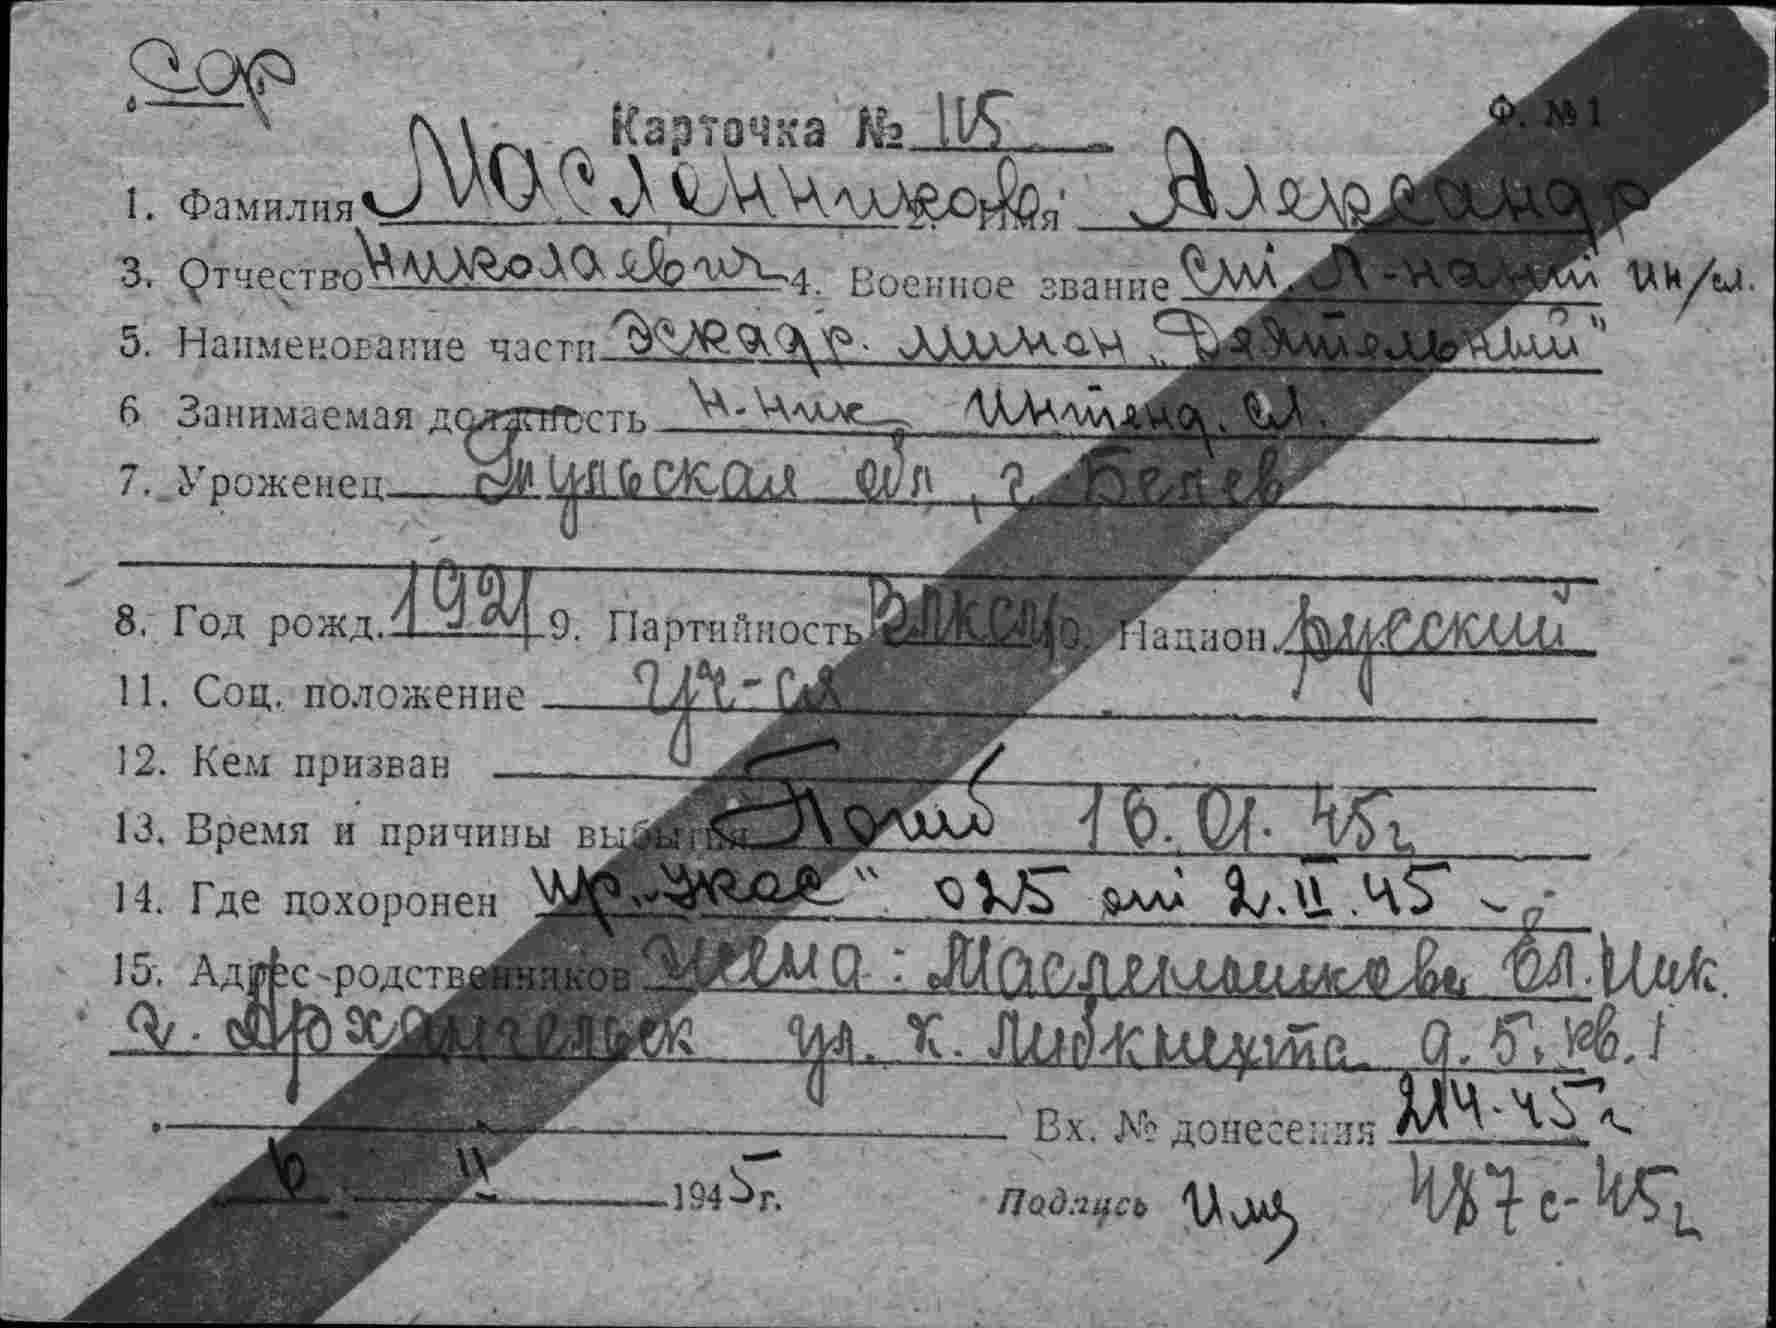 Сар
Карточка № 115 Ф. № 1
1. Фамилия Масленников 2. Имя Александр
3. Отчество Николаевич 4. Военное звание Ст. л-нант ин/сл.
5. Наименование части Эскадр. минон. „Деятельный"
6 Занимаемая должность н-ник интенд. сл.
7. Уроженец Тульская обл, г. Белев
8. Год рожд. 1921 9. Партийность ВЛКСМ 10. Национ. русский
11. Соц. положение уч-ся
12. Кем призван
13. Время и причины выбытия Погиб 16.01.45г
14. Где похоронен пр. 025 от 2.II.45
15. Адрес родственников Жена: Масленникова Ел. Ник.
г. Архангельск ул. К. Либкнехта д. 5, кв. 1
Вх. № донесения 214-45г
6 II 1945 г. Подпись 487с-45г